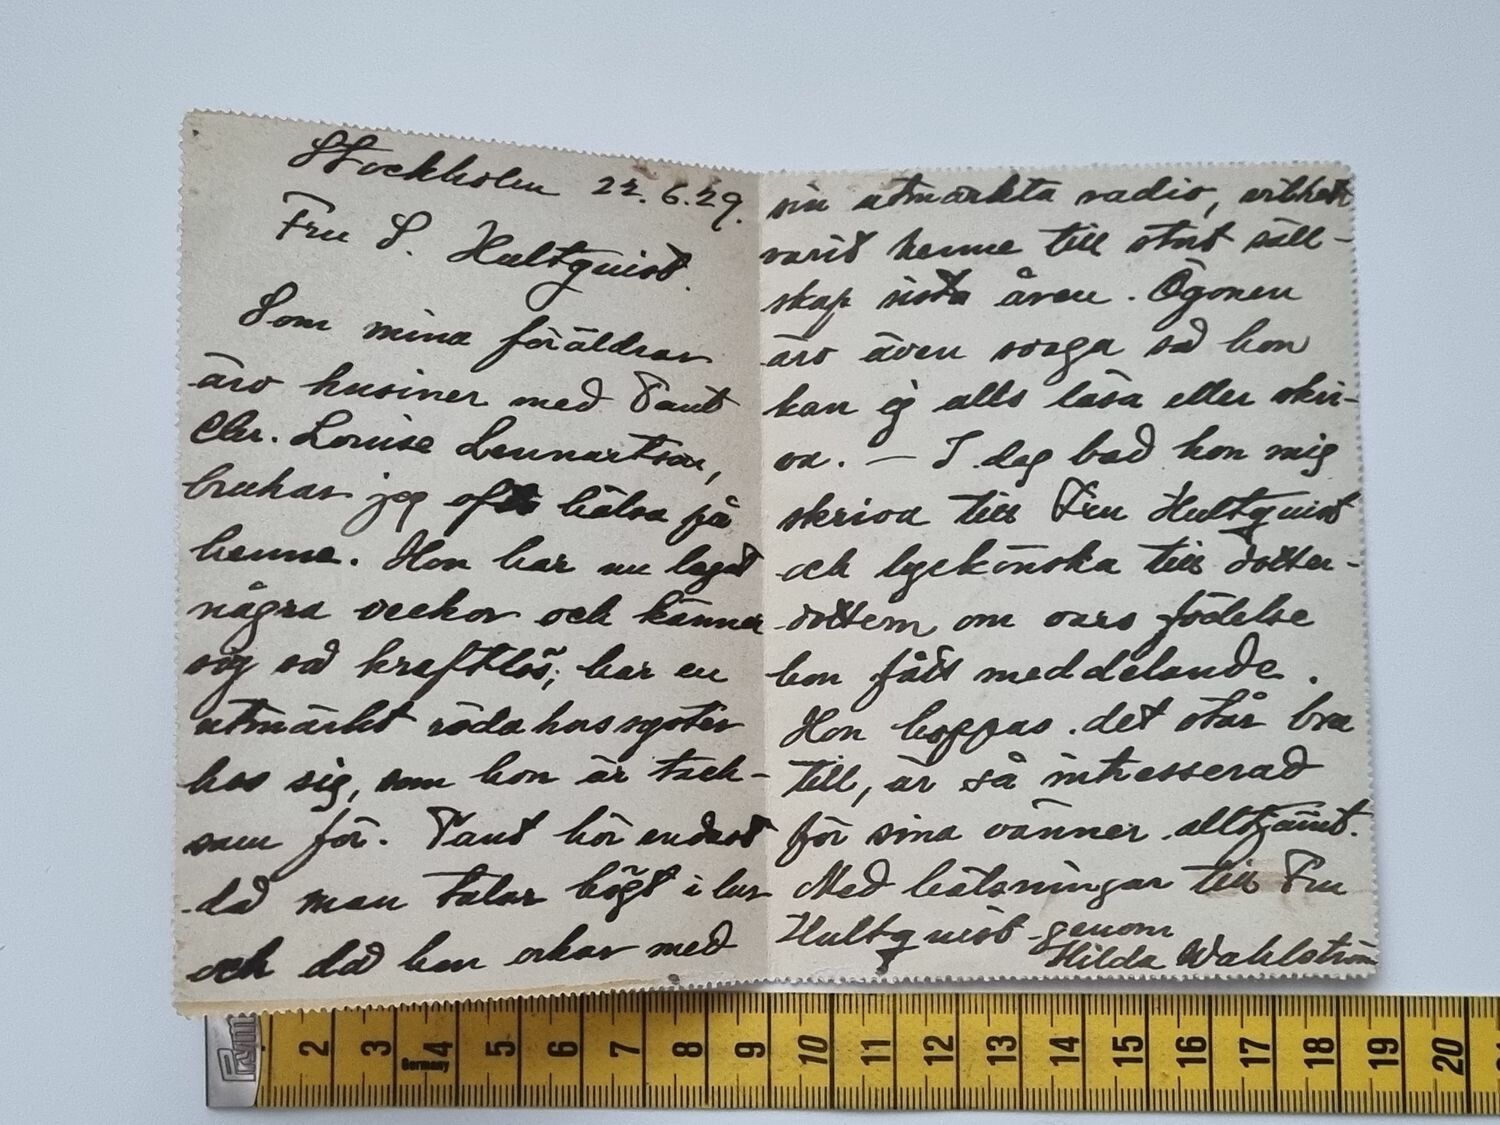 Stockholm 22.6.29.
Fru S. Hultquist.
Som mina föräldrar
äro kusiner med Tant
Chr. Louise Lennartson,
brukar jag ofta hälsa på
henne. Hon har nu legat
några veckor och känner
sig så kraftlös; har en
utmärkt röda hos
hos sig, som hon är tack-
sam för. Tant hör endast
då man talar högt i lur
och då hon orkar med
sin utmärkta radio, vilken
varit henne till stort säll-
skap sista åren. Ögonen
äro även svaga så hon
kan ej alls läsa eller skri-
va. — I dag bad hon mig
skriva till Fru Hultquist
och lyckönska till dotter-
dottern om vars födelse
hon fått meddelande.
Hon hoppas det står bra
till, är så intresserad
för sina vänner alltjämt.
Med hälsningar till Fru
Hultquist genom
Hilda Wahlström
Prym
2 3 4 5 6 7 8 9 10 11 12 13 14 15 16 17 18 19 20
Germany